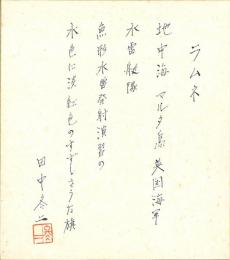 ラムネ
地中海 マルタ島 英国海軍
水雷艇隊
魚形水雷発射演習の
水色に淡紅色のすずしさうな旗
田中冬二